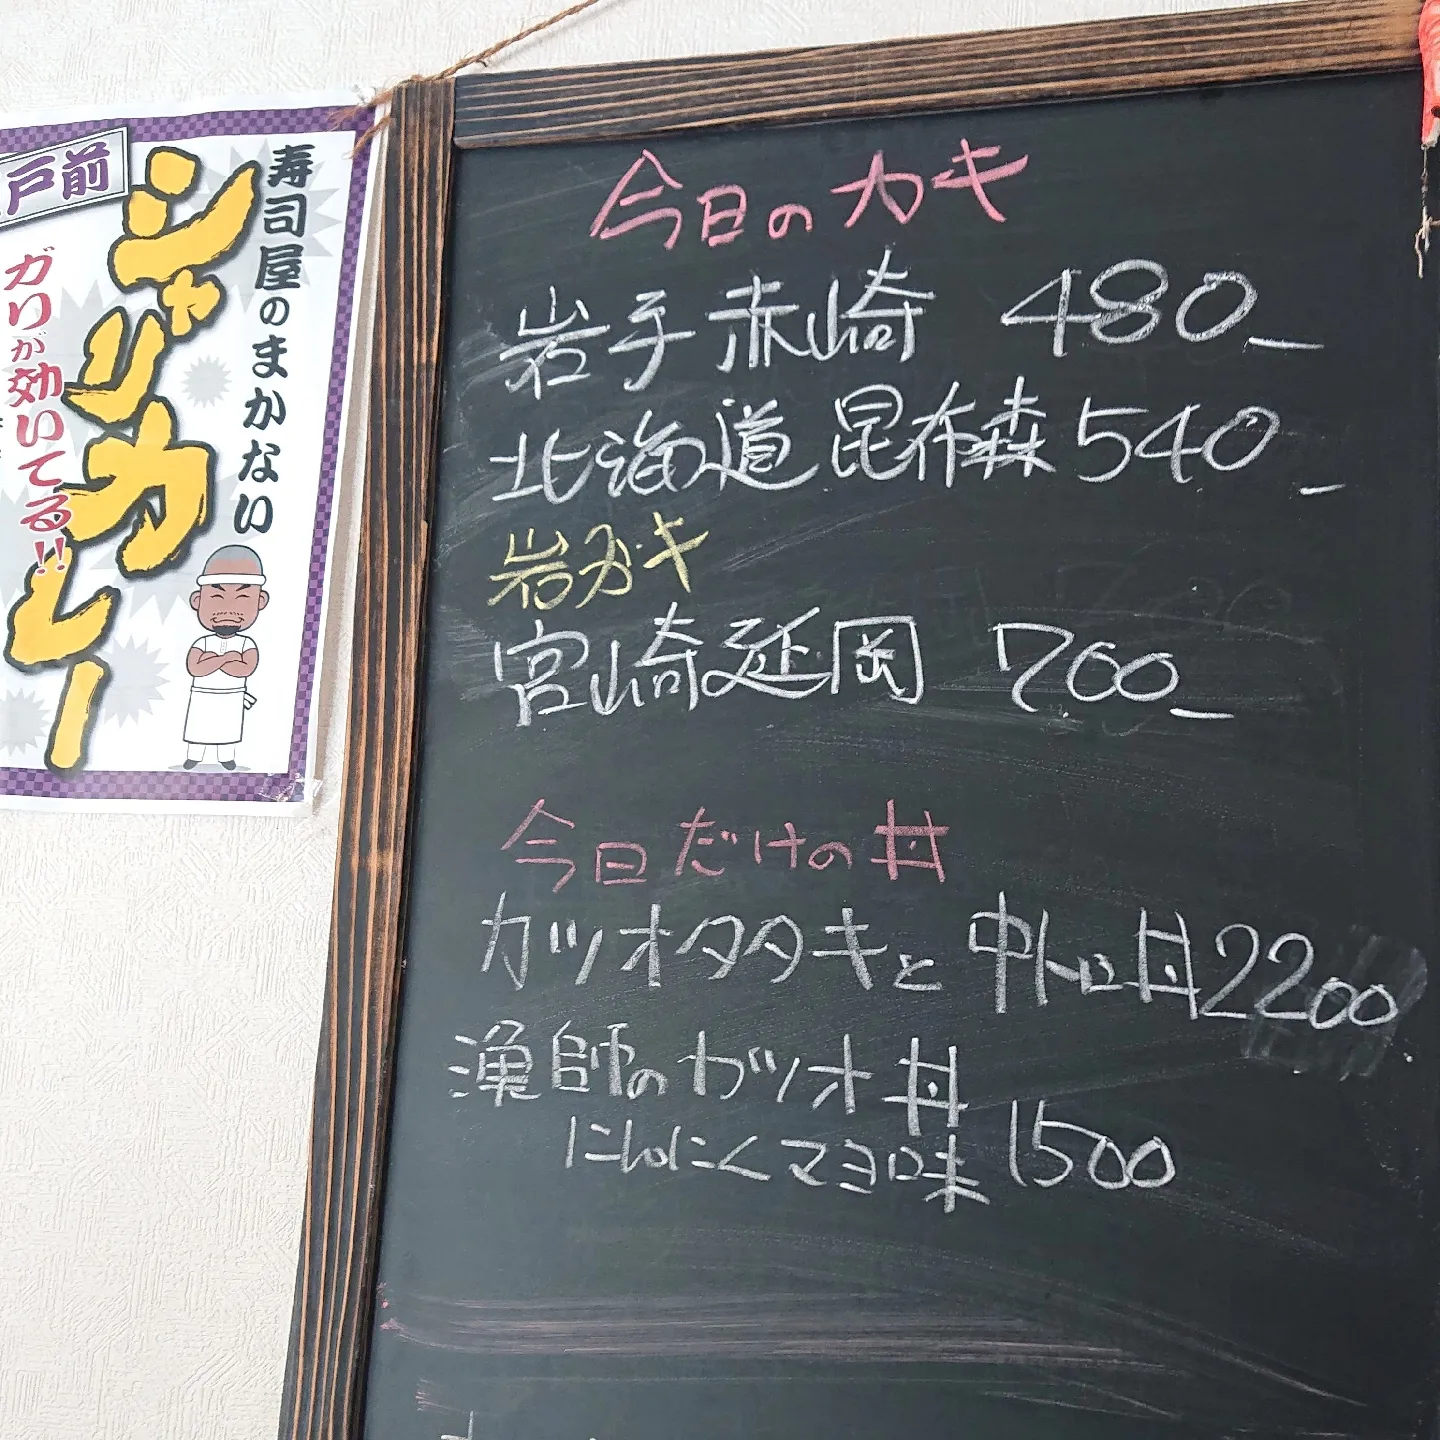 今日のカキ
岩手赤崎 480_
北海道昆布森540_
岩ガキ
宮崎延岡 700_
今日だけの丼
カツオタタキと中トロ丼2200
漁師のガツオ丼
にんにくマヨ味 1500
寿司屋のまかない
戸前
シャリカレー
ガリが効いてる!!